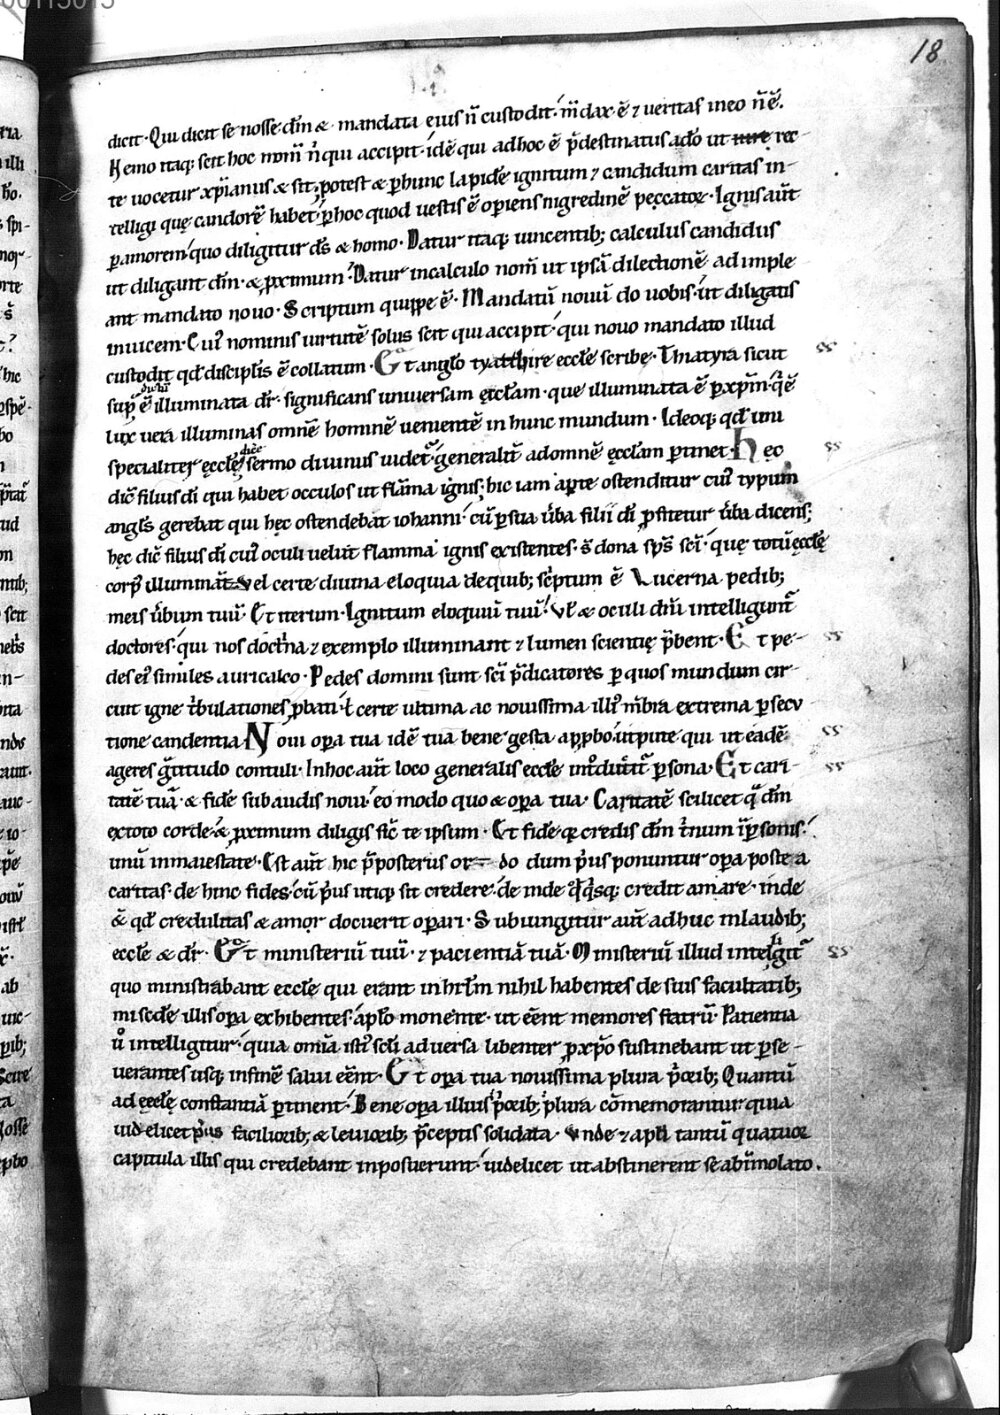 18
dicit· Qui dicit se nosse dm̄ & mandata eius n̄ custodit· m̄dax ē ⁊ ueritas in eo n̄ ē.
Nemo itaq; scit hoc nom̄ n̄ qui accipit· idē qui ad hoc ē p̄destinatus a dō ut iure rec
te uocetur xp̄ianus & sit; potest & p̱ hunc lapidē ignitum ⁊ candidum caritas in-
telligi quę candorē habet· p̱ hoc quod uestis ē op̱iens nigredinē peccatoꝝ· Ignis aūt
p̱ amorem quo diligitur ds̄ & homo· Datur itaq; uincentib; calculus candidus
ut diligant dm̄· & p̱ximum· Datur in calculo nom̄ ut ipsā dilectionē adimple
ant mandato nouo· Scriptum quippe ē· Mandatū nouū do uobis· ut diligatis
inuicem· Cui᷒ nominis uirtutē solus scit qui accipit· qui nouo mandato illud
custodit qd̄ disciplis̄ ē collatum· Et anglo tyathire eccl̄e scribe· Tyatyra sicut
sup̱ ē illuminata dr̄· significans uniuersam ęccl̄am· que illuminata ē p̱ xp̄m· q̄ ē
lux uera illuminas omnē hominē uenientē in hunc mundum· Ideoq; qd̄ uni
specialiter ęccl̄ę sermo diuinus uidet᷑ generalit̄ ad omnē ęccl̄am p̱tinet· Hęc
dic̄ filius di qui habet occulos ut flām̄a ignis; hic iam ap̱te ostenditur cui᷒ typum
angl̄s gerebat qui hęc ostendebat iohanni· cū p̱ sua ūba filii di̅ p̱fitetur ūba dicens;
hęc dic̄ filius di̅ cui᷒ oculi uelut flamma ignis existentes· s̄ dona sps̄ sci̅· quę totū ęccl̄ę
corp᷒ illuminat̄· Vel certe diuina eloquia de quib; sc̄ptum ē Lucerna pedib;
meis ūbum tuū· Et iterum· Ignitum eloquiū tuū· Vl̄ & oculi dn̄i intelligunt᷑
doctores· qui nos doct̄na ⁊ exemplo illuminant ⁊ lumen scientię p̄bent· Et pe-
des ei᷒ similes auricalco· Pedes domini sunt sci̅ p̄dicatores p̱ quos mundum cir-
cuit igne t̄bulationes p̱bati· ł certe ultima ac nouissima illi᷒ m̄bra extrema p̱secu
tione candentia Noui op̱a tua idē tua bene gesta app̱bo· ut pute qui ut eadē
ageres ḡtitudo contuli· In hoc aūt loco generalis eccl̄e int᷒ducit᷑ p̱sona· Et cari-
tatē tuā· & fidē subaudis noui· eo modo quo & op̱a tua· Caritatē scilicet q̄ dm̄
ex toto corde· & p̱ximum diligis sic̄ te ipsum· Et fidē q̱ credis dm̄ t̄num in p̱sonis·
unū in maiestate· Est aūt hic p̄posterius or= do dum p̄us ponuntur op̱a postea
caritas· de hinc fides· cū p̄us utiq; sit credere· de inde q̱q̄sq; credit amare· inde
ē qd̄ credulitas & amor docuerit op̱ari· Subiungitur aūt adhuc in laudib;
eccl̄e & dr̄· Et ministeriū tuū· ⁊ pacientiā tuā· Ministeriū illud intelligit᷑
quo ministrabant eccl̄e qui erant in hrl̄m nihil habentes de suis facultatib;
mis̄cdie illis op̱a exhibentes· apl̄o monente· ut eēnt memores fratrū· Patientia
ū intelligitur· quia omīa isti᷒ scl̄i aduersa libenter p̱ xp̄o sustinebant ut p̱se-
uerantes usq; in finē salui eēnt· Et op̱a tua nouissima plura p̄orib; Quantū
ad ęccl̄ę constantiā p̱tinent· Bene op̱a illius p̄orib; plura cōmemorantur quia
uidelicet p̄us faciliorib; & leuiorib; p̄ceptis solidata· Vnde ⁊ apl̄i tantū quatuor
capitula illis qui credebant inposuerunt· uidelicet ut abstinerent se ab īmolato.